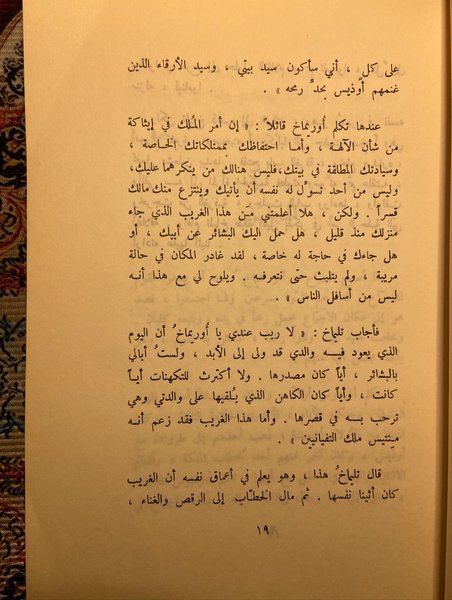 على كل ٍ ، أني سأكون سيد بيتي ، وسيد الأرقاء الذين
غنمهم أوذيس بحدِّ رمحه » .
عندها تكلم أوريماخ قائلاً : « إن أمر المُلك في إيثاكة
من شأن الآلهة ، وأما احتفاظك بممتلكاتك الخاصة ،
وسيادتك المطلقة في بيتك، فليس هنالك من ينكرهما عليك،
وليس من أحد تسوِّل له نفسه أن يأتيك وينتزع منك مالك
قسراً . ولكن ، هلا أعلمتني مَن هذا الغريب الذي جاء
منزلك منذ قليل ، هل حمل اليك البشائر عن أبيك ، أو
هل جاءك في حاجة له خاصة ، لقد غادر المكان في حالة
مريبة ، ولم يتلبث حتى نتعرفه . ويلوح لي مع هذا أنه
ليس من أسافل الناس » .
فأجاب تليماخ : « لا ريب عندي يا أوريماخُ أن اليوم
الذي يعود فيه والدي قد ولى إلى الأبد ، ولستُ أبالي
بالبشائر ، أياً كان مصدرها . ولا أكترث للتكهنات أياً
كانت ، وأياً كان الكاهن الذي يُلقيها على والدتي وهي
ترحب به في قصرها . وأما هذا الغريب فقد زعم أنه
منتيس ملك التفيانيين » .
قال تليماخُ هذا ، وهو يعلم في أعماق نفسه أن الغريب
كان أثينا نفسها . ثم مال الخطّاب إلى الرقص والغناء ،
١٩